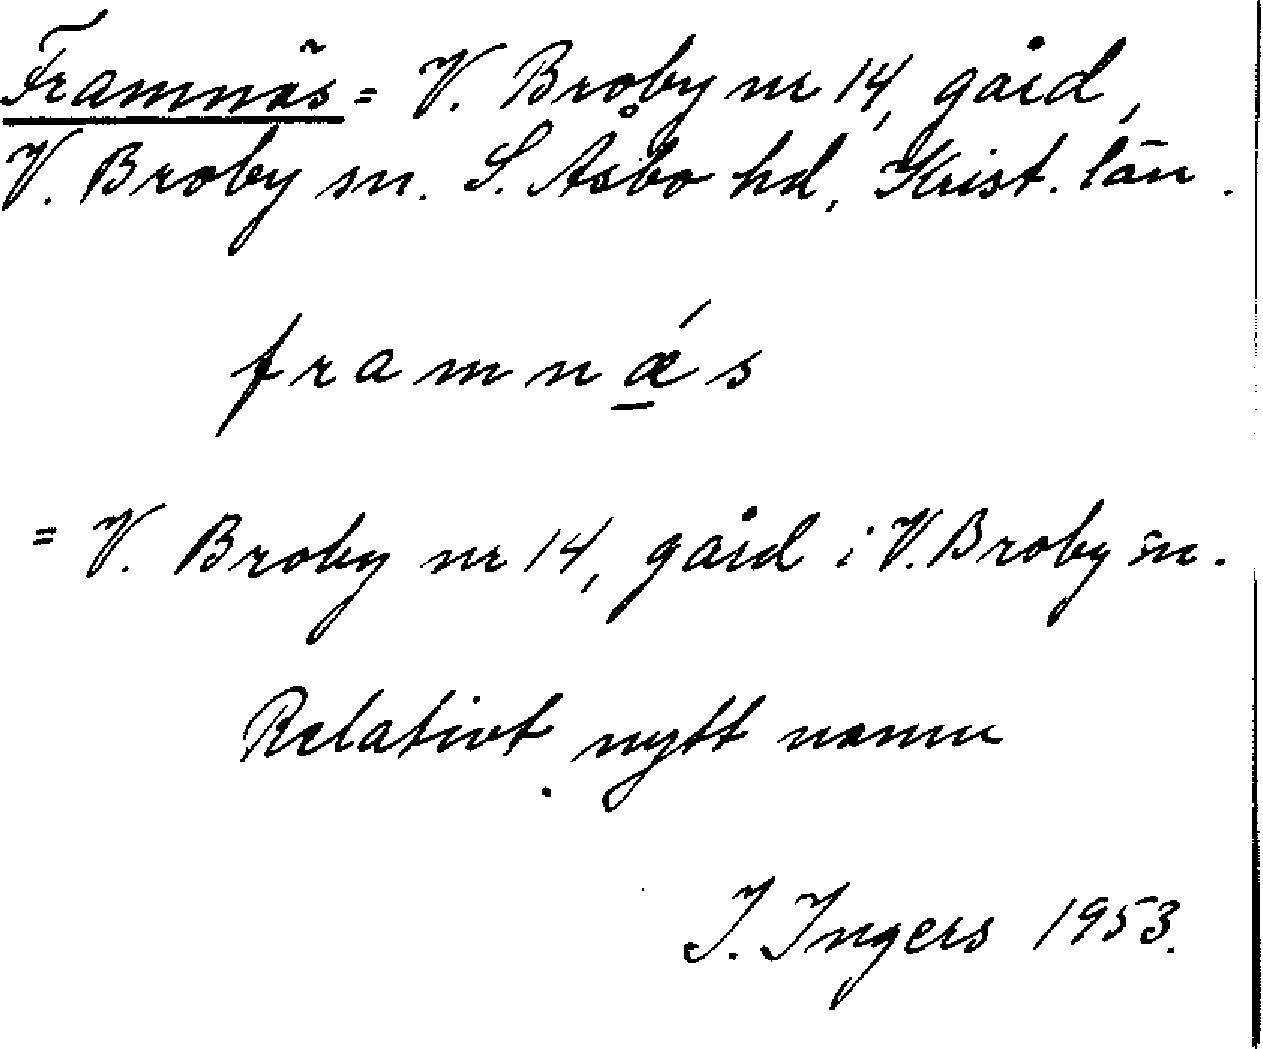 Framnäs = V. Broby nr 14, gård,
V. Broby sn. S. Åsbo hd, Krist. län.
framnǽs
= V. Broby nr 14, gård i V. Broby sn.
Relativt nytt namn
I. Ingers 1953.